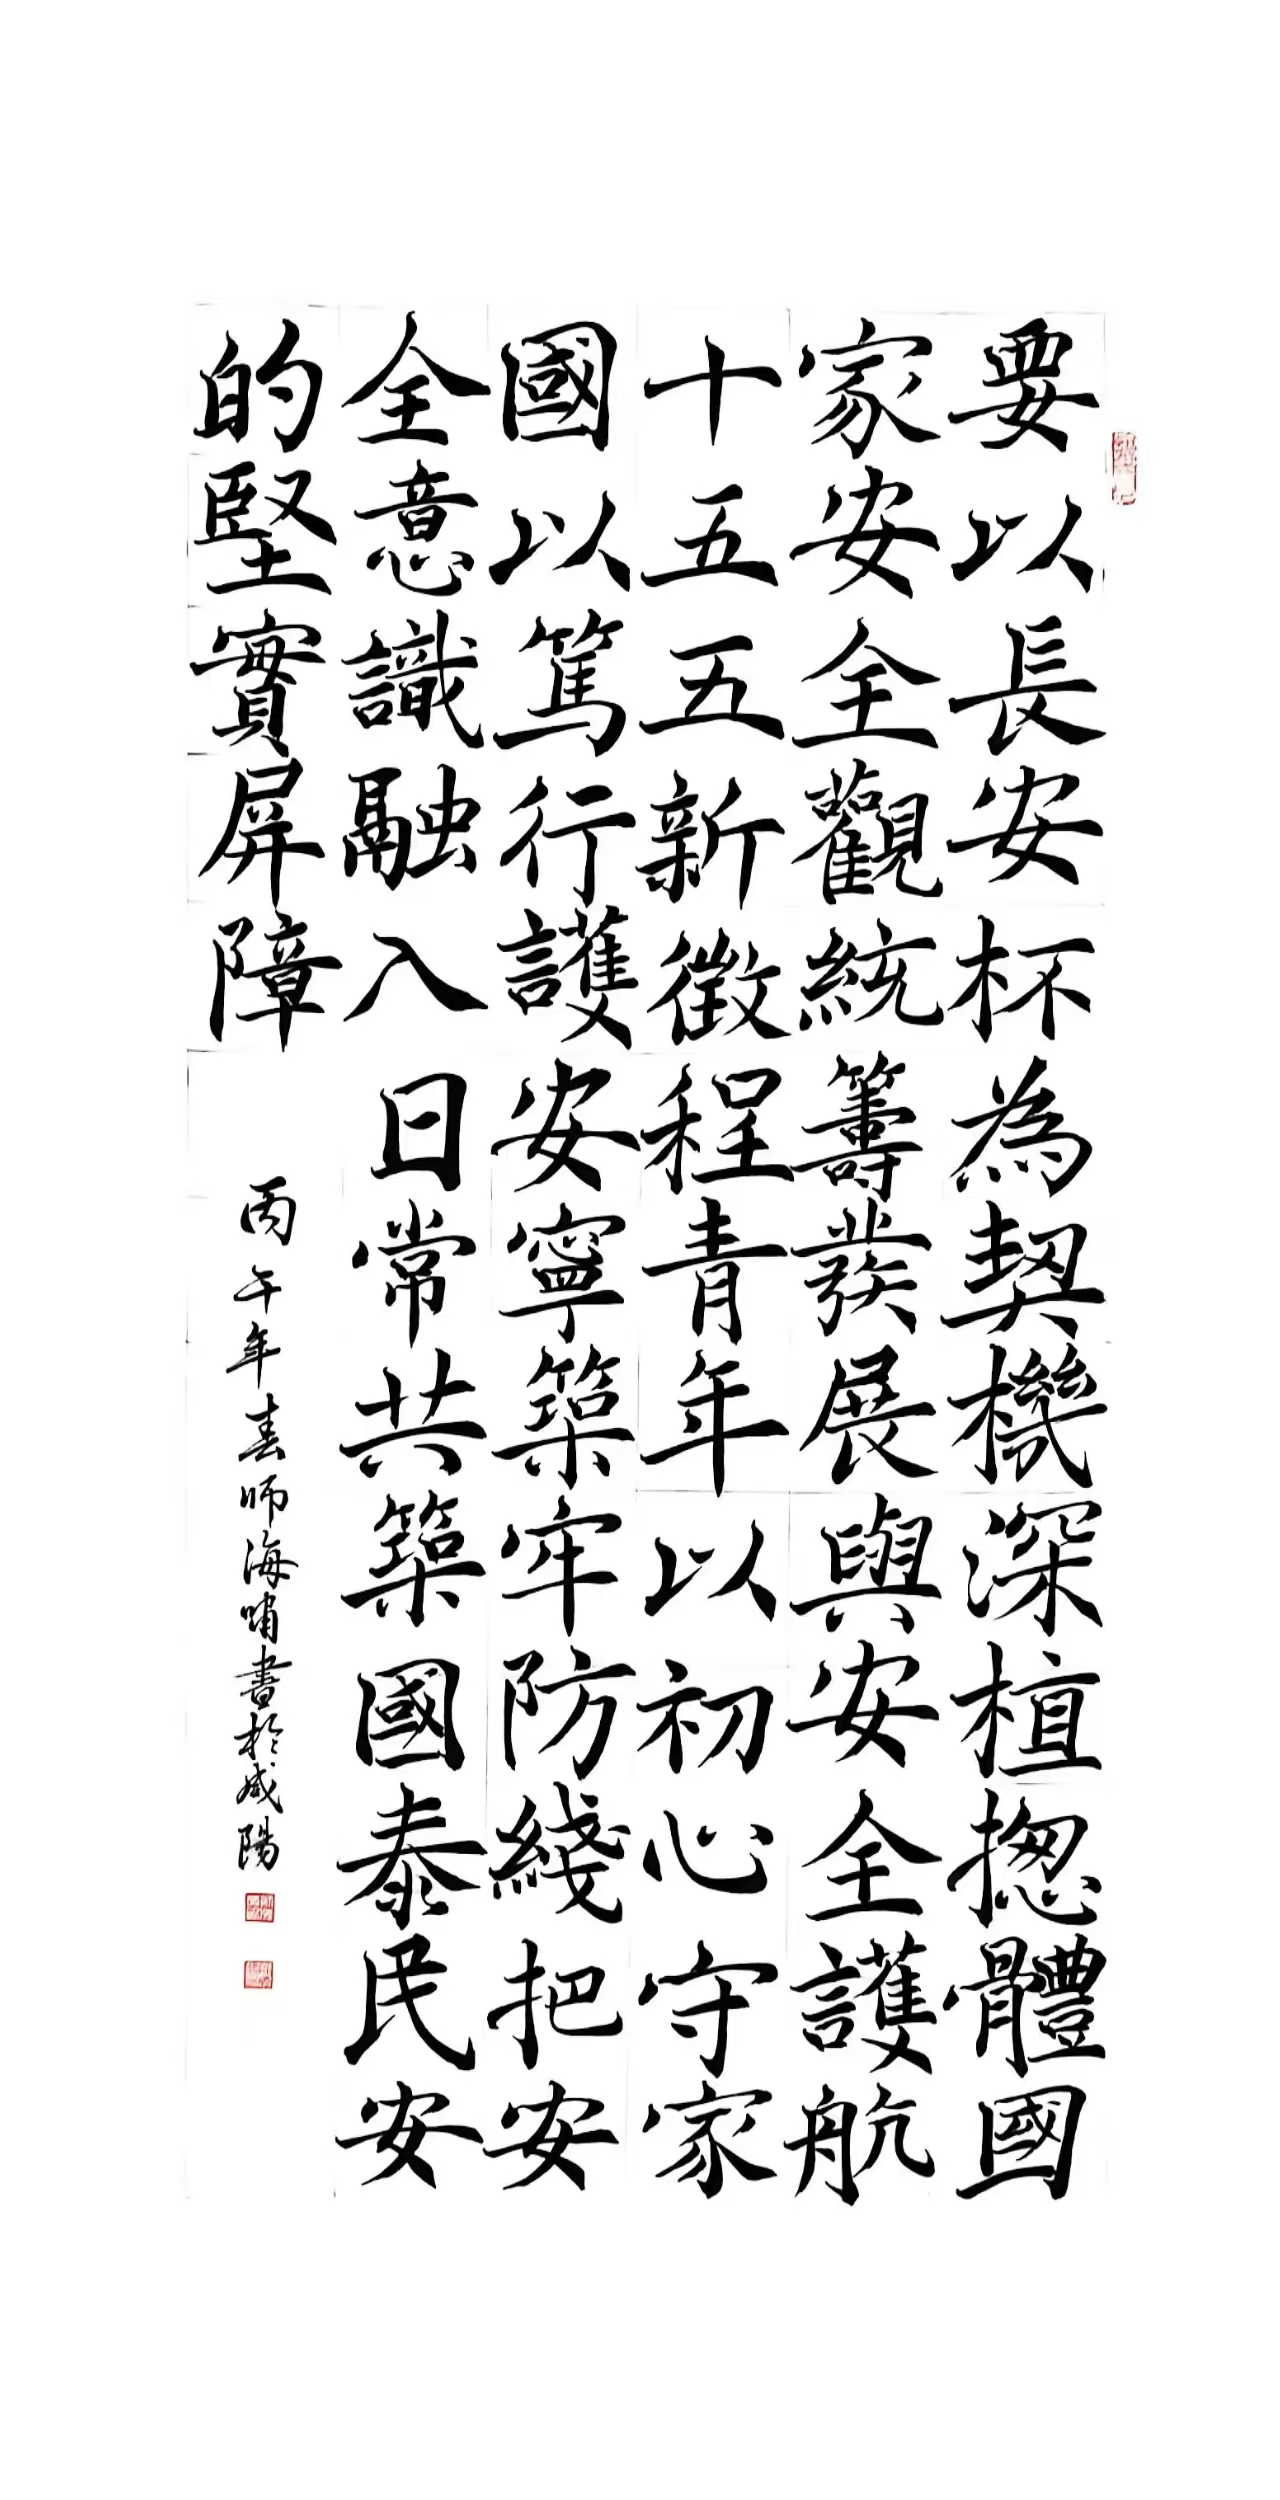 要以長安杯為契機深植揔體國
家安全觀統籌發展與安全護航
十五五新徵程青年以初心守家
國以篤行護安寧築牢防綫把安
全意識融入日常共築國泰民安
的堅實屏障
丙午年春師海嘯書於咸陽